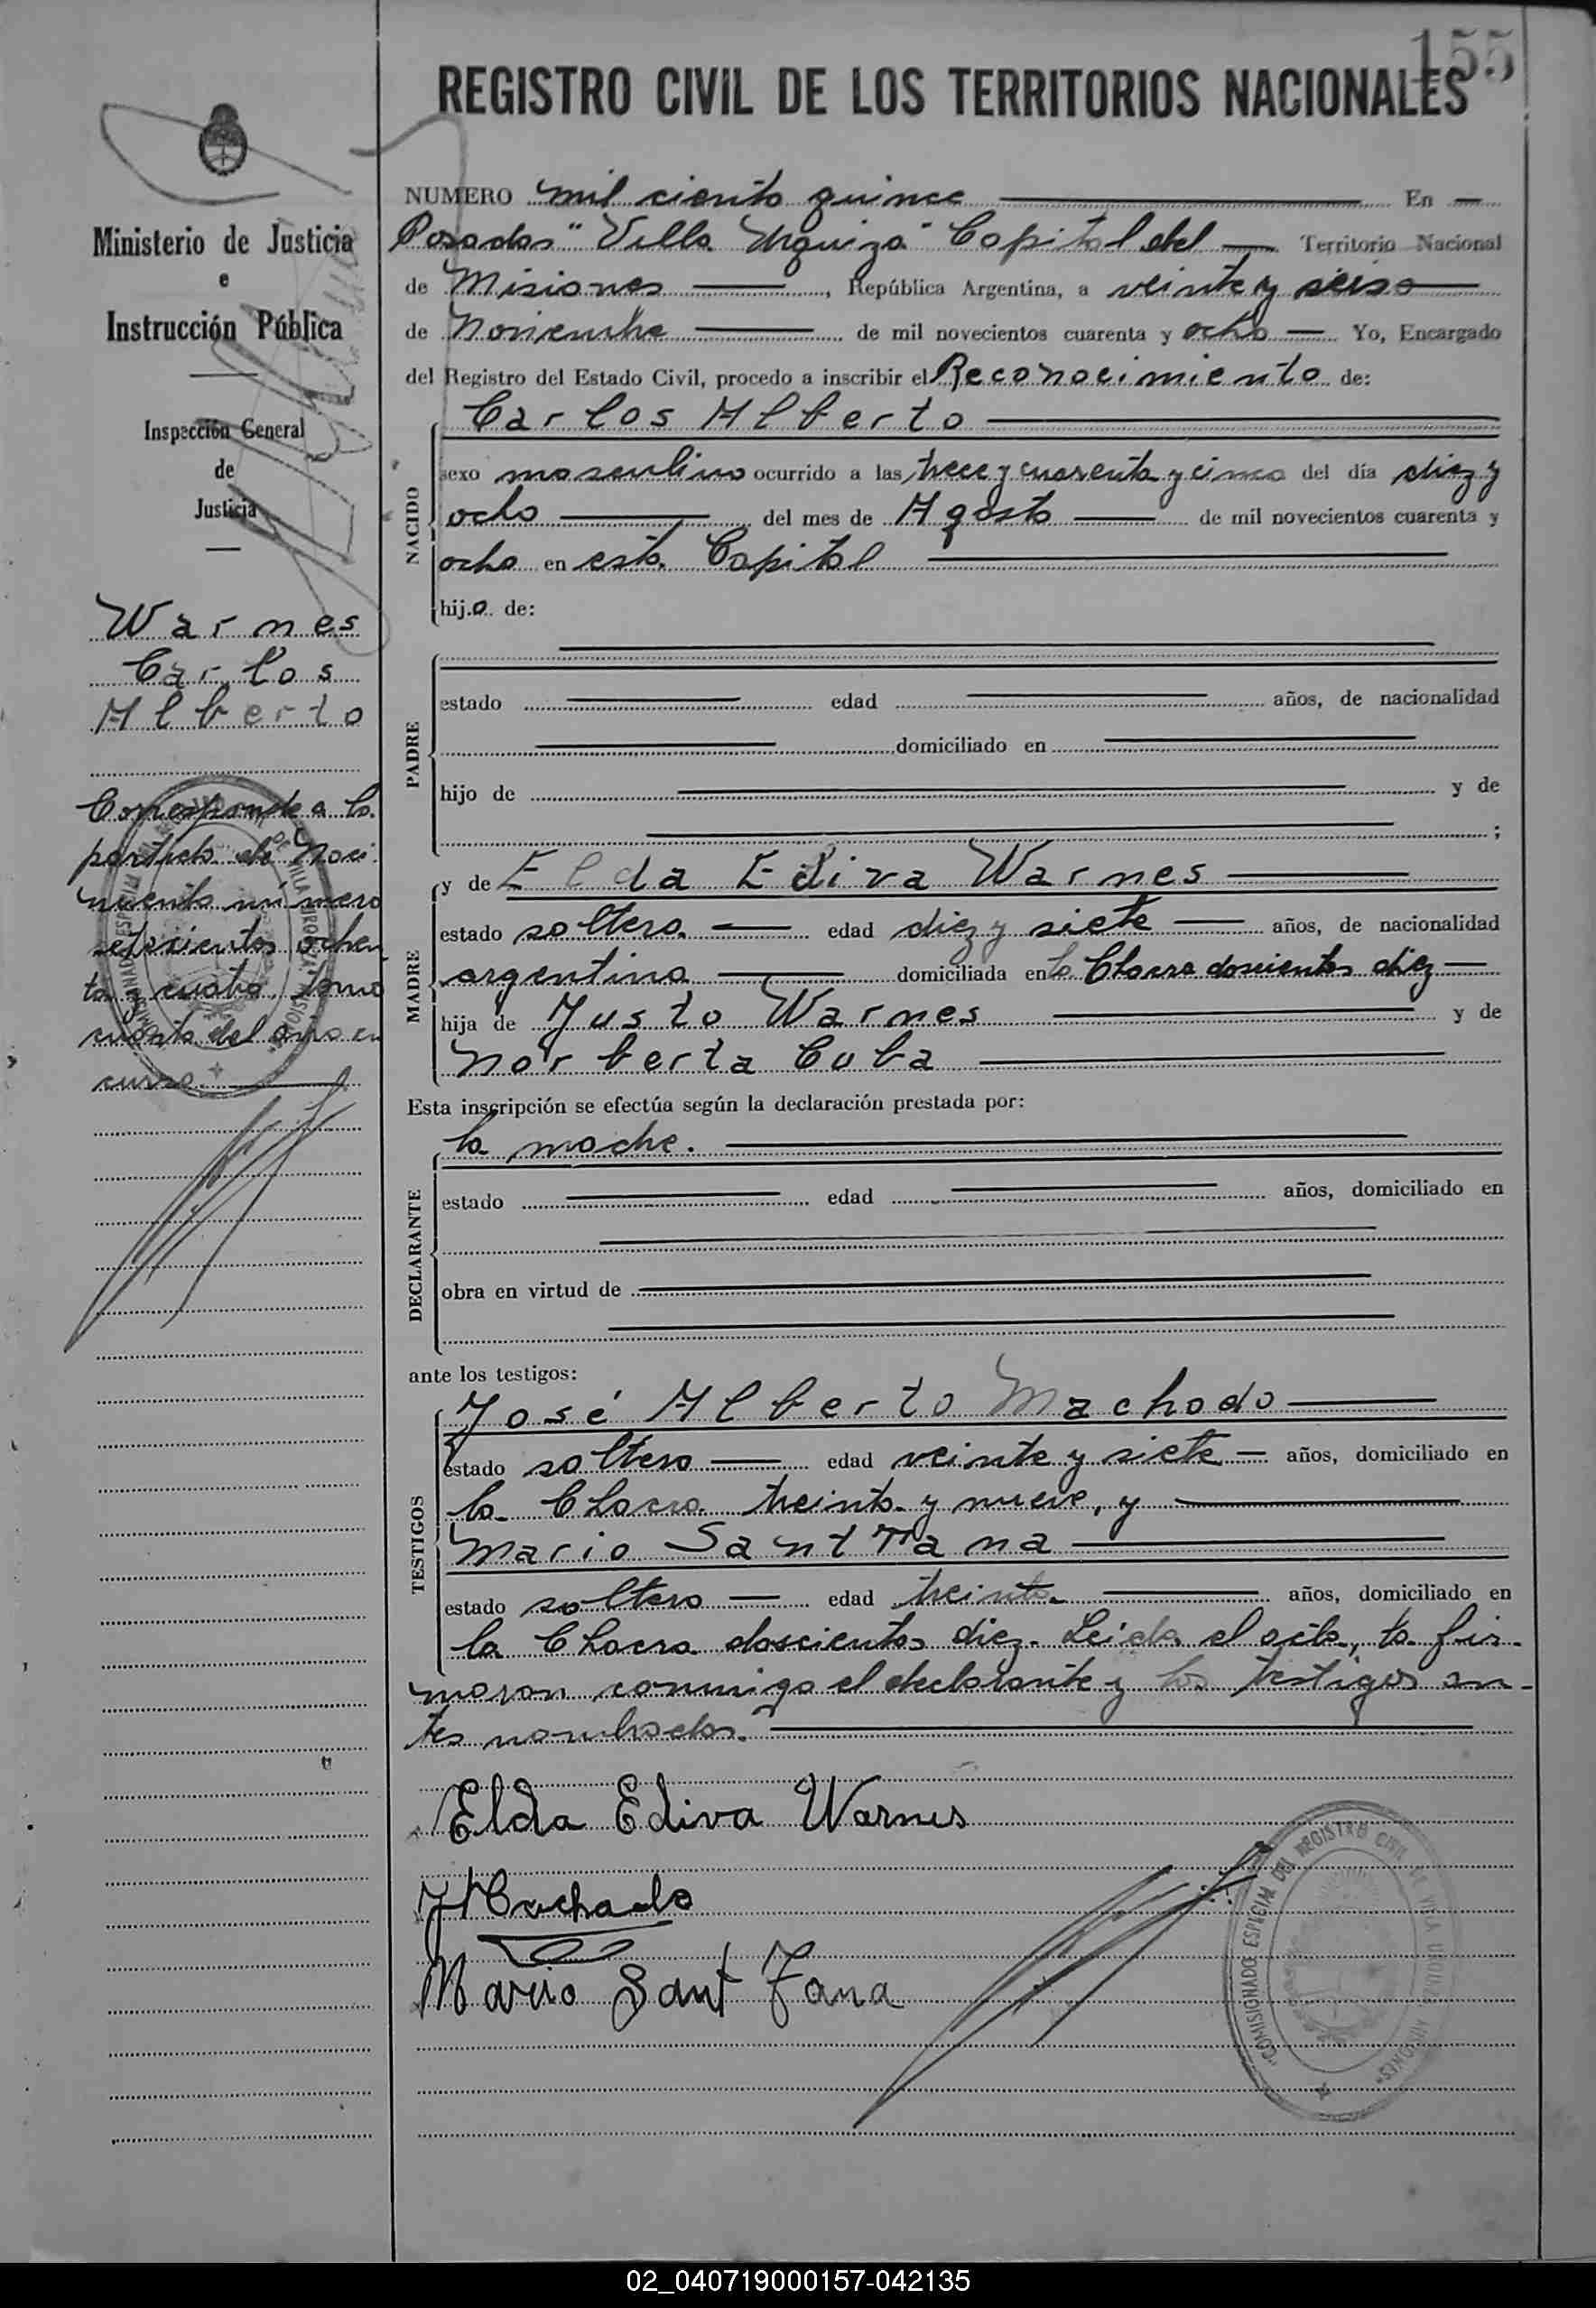 155
REGISTRO CIVIL DE LOS TERRITORIOS NACIONALES
Ministerio de Justicia
e
Instrucción Pública
Inspección General
de
Justicia
Warnes
Carlos
Alberto
Corresponde a la
partida de naci
miento número
setecientos ochen
ta y cuatro, tomo
cuarto del año en
curso.
NUMERO mil ciento quince En
Posadas "Villa Urquiza" Capital del Territorio Nacional
de Misiones, República Argentina, a veinte y seis
de Noviembre de mil novecientos cuarenta y ocho Yo, Encargado
del Registro del Estado Civil, procedo a inscribir el Reconocimiento de:
Carlos Alberto
NACIDO
sexo masculino ocurrido a las trece y cuarenta y cinco del día diez y
ocho del mes de Agosto de mil novecientos cuarenta y
ocho en esta Capital
hijo de:
PADRE
estado edad años, de nacionalidad
domiciliado en
hijo de y de
;
MADRE
y de Elda Ediva Warnes
estado soltera edad diez y siete años, de nacionalidad
argentina domiciliada en la Chacra doscientos diez
hija de Justo Warnes y de
Norberta Cuba
Esta inscripción se efectúa según la declaración prestada por:
la madre.
DECLARANTE
estado edad años, domiciliado en
obra en virtud de
ante los testigos:
TESTIGOS
José Alberto Machado
estado soltero edad veinte y siete años, domiciliado en
la Chacra treinta y nueve, y
Mario Sant'Tana
estado soltero edad treinta años, domiciliado en
la Chacra doscientos diez. Leída el acta, la fir-
maron conmigo el declarante y los testigos an-
tes nombrados.
Elda Ediva Warnes
JMachado
Mario Sant Tana
COMISIONADO ESPECIAL DEL REGISTRO CIVIL DE VILLA URQUIZA MISIONES
02_040719000157-042135